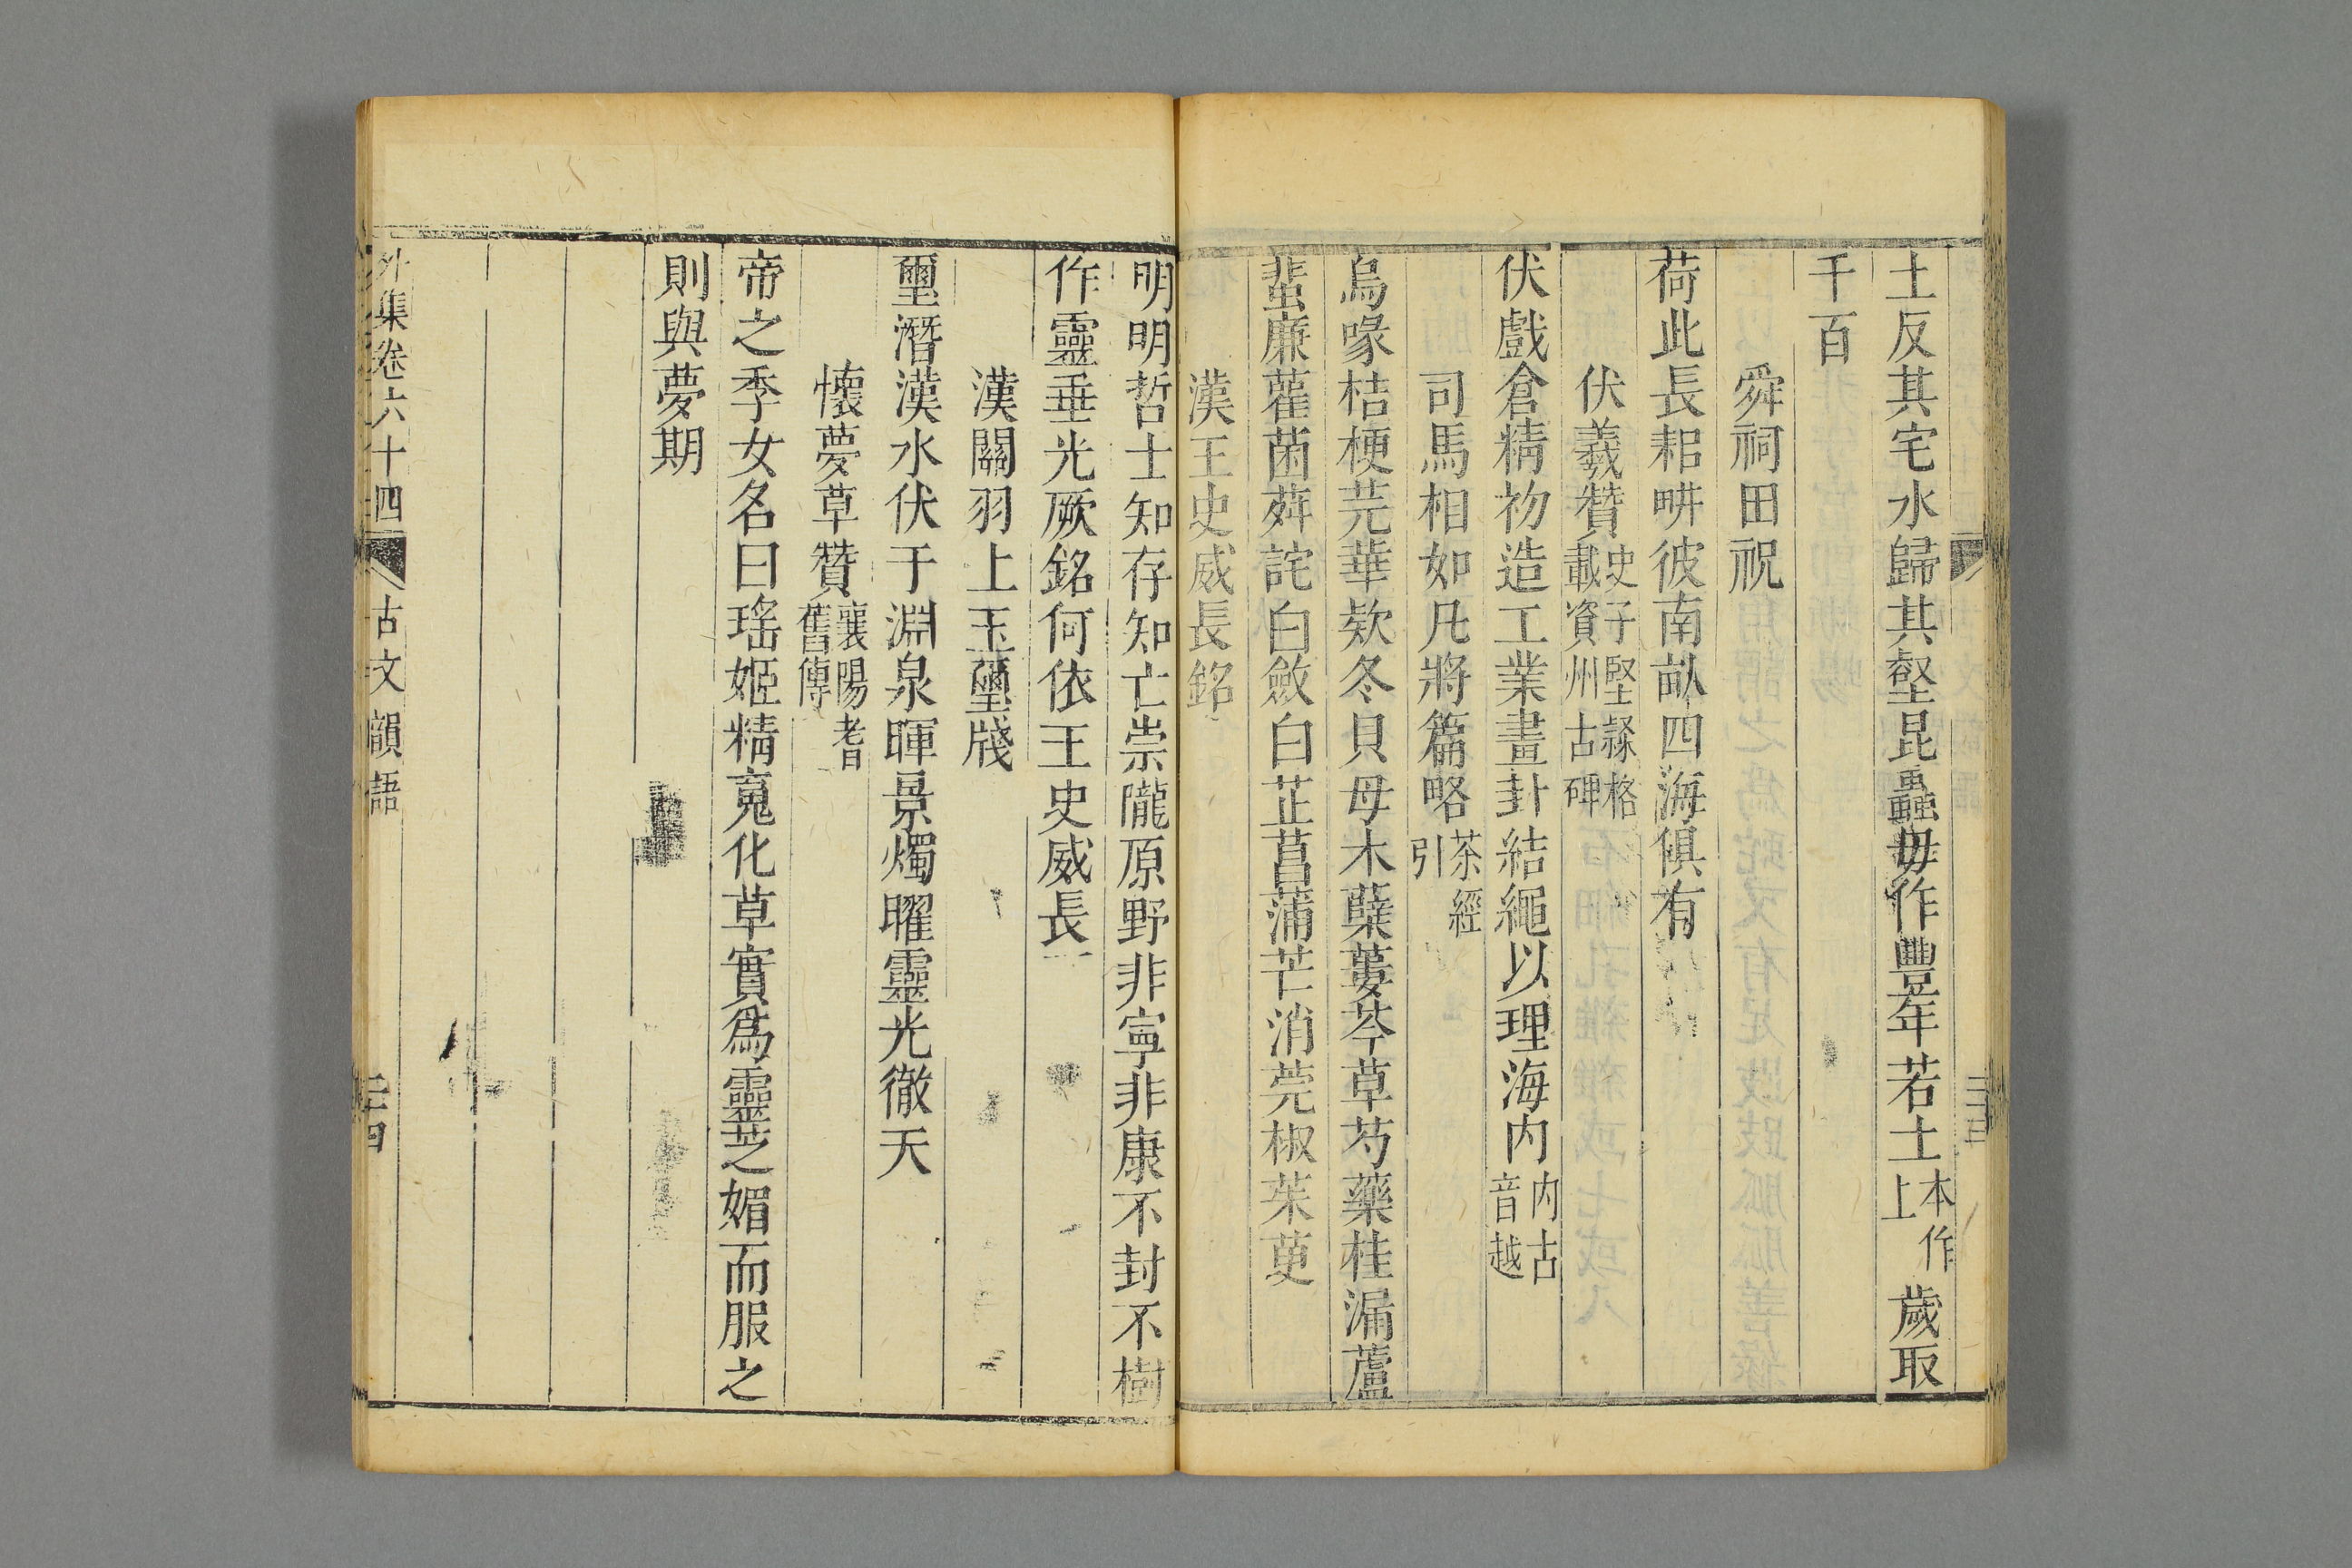 土反其宅水歸其壑昆蟲毋作豐年若土本作上歲取
千百
舜祠田祝
荷此長耜畊彼南畝四海俱有
伏羲贊史子堅隸格載資州古碑
伏戲倉精初造工業畫卦結繩以理海内内古音越
司馬相如凡將篇略茶經引
烏喙桔梗芫華欵冬貝母木蘖蔞芩草芍藥桂漏蘆
蜚廉雚菌荈詫白斂白芷菖蒲芒消莞椒茱萸
漢王史威長銘
明明哲士知存知亡崇隴原野非寧非康不封不樹
作靈垂光厥銘何依王史威長
漢關羽上玉璽牋
璽潛漢水伏于淵泉暉景燭曜靈光徹天
懐夢草贊襄陽耆舊傳
帝之季女名曰瑤姬精䰟化草實爲靈芝媚而服之
則與夢期
外集卷六十四
古文韻語
三十四